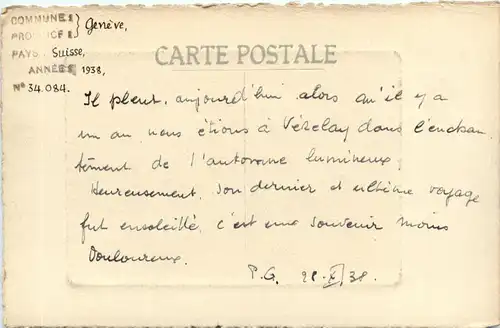 COMMUNE } Genève,
PROVINCE }
PAYS Suisse,
ANNÉE 1938,
N° 34.084.
CARTE POSTALE
Il pleut, aujourd'hui alors qu'il y a
un an nous étions à Vézelay dans l'enchan
tement de l'automne lumineux,
Heureusement, son dernier et ultime voyage
fut ensoleillé, c'est une souvenir moins
douloureux.
P.G. 28.X.38.